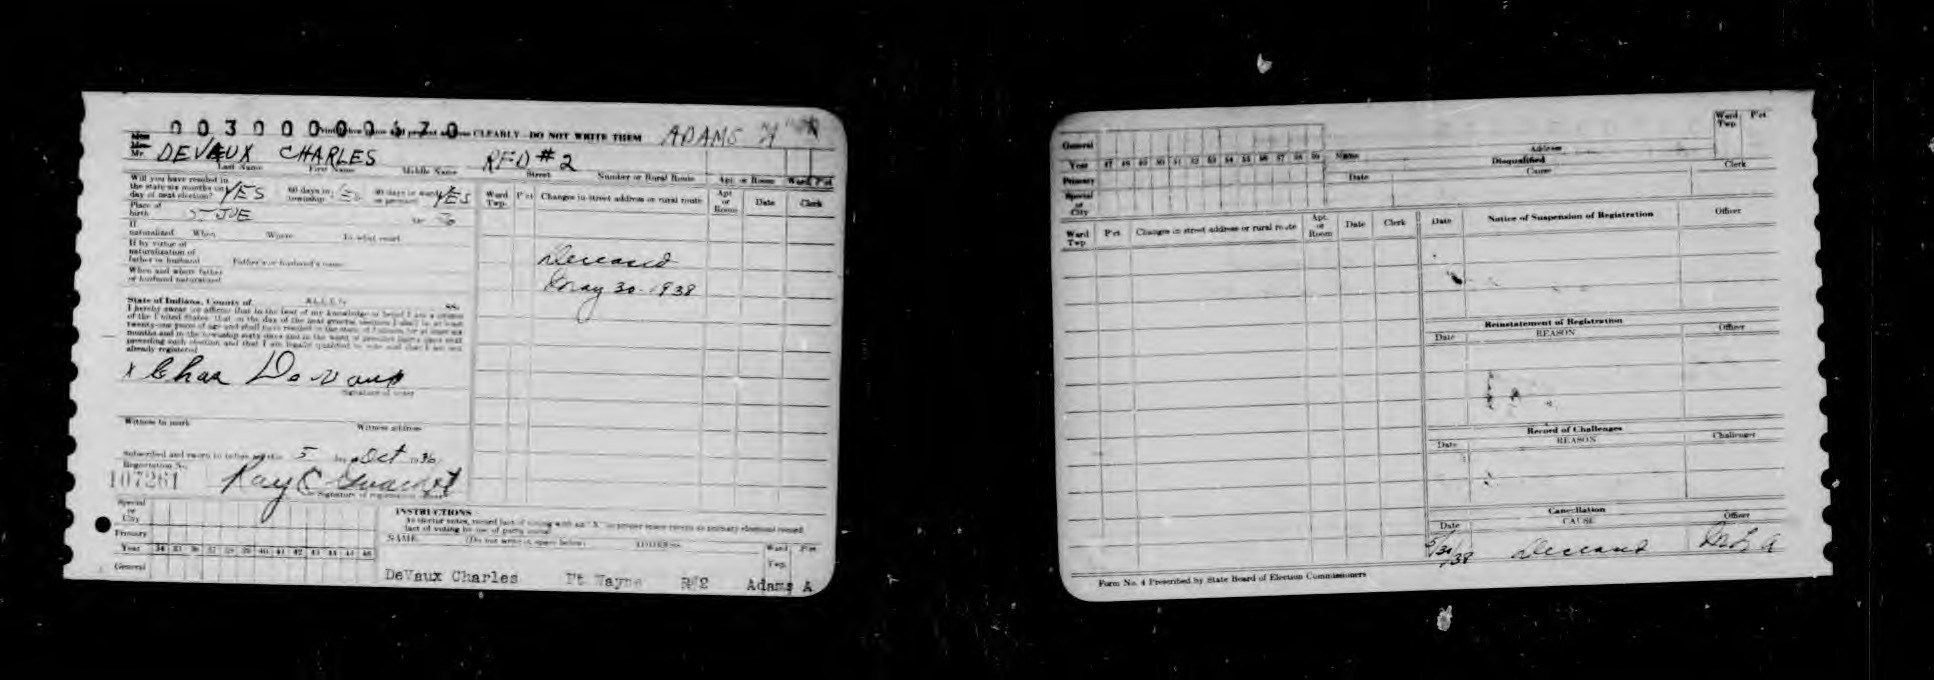 Print
CLEARLY—DO NOT WRITE THEM ADAMS A
Mr. DEVAUX CHARLES RFD # 2
Last Name First Name Middle Name Street Number or Rural Route Apt. or Room Ward Pct
Will you have resided in
the state six months on YES 60 days in
day of next election? township YES
Place of
birth ST JOE
If
naturalized When Where To what court
If by virtue of
naturalization of
father or husband Father's or husband's name
When and where father
or husband naturalized
State of Indiana, County of ALLEN SS:
I hereby swear or affirm that to the best of my knowledge or belief I am a citizen
of the United States; that on the day of the next general election I shall be at least
twenty-one years of age and shall have resided in the state of Indiana for at least six
months and in the township sixty days and in the ward or precinct thirty days next
preceding such election and that I am legally qualified to vote and that I am not
already registered
x Chas DeVaux
Signature of voter
Witness to mark Witness address
Subscribed and sworn to before me this 5 day Oct 1936
Registration No.
107261 Ray C
Signature of registration
Special
or
City
Primary
Year 34 35 36 37 38 39 40 41 42 43 44 45 46
General
Ward Twp. Pct Changes in street address or rural route Apt. or Room Date Clerk
Deceased
May 30-1938
INSTRUCTIONS
NAME (Do not write in space below) ADDRESS Ward Twp. Pct
DeVaux Charles Ft Wayne R#2 Adams A
General
Year 47 48 49 50 51 52 53 54 55 56 57 58 59
Primary
Special
or
City
Name Address Ward Twp. Pct
Disqualified
Date Cause Clerk
Ward Twp. Pct Changes in street address or rural route Apt. or Room Date Clerk
Date Notice of Suspension of Registration Officer
Reinstatement of Registration
Date REASON Officer
Record of Challenges
Date REASON Challenger
Cancellation
Date CAUSE Officer
5/31/38 Deceased
Form No. 4 Prescribed by State Board of Election Commissioners